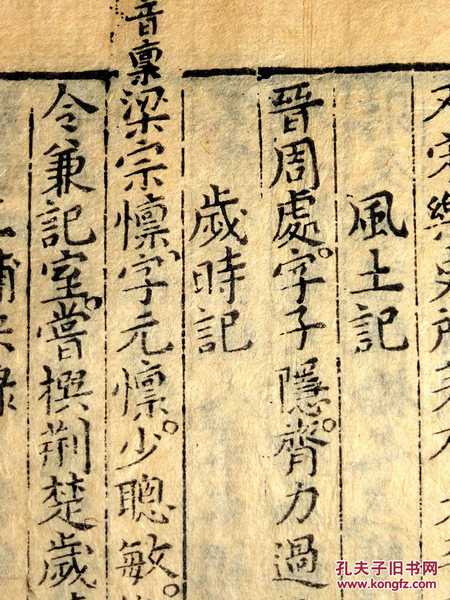 風土記
晉周處。字子隱。膂力過
歲時記
音稟
梁宗懍字元懍。少聰敏。
令兼記室。嘗撰荆楚歲
孔夫子旧书网
www.kongfz.com